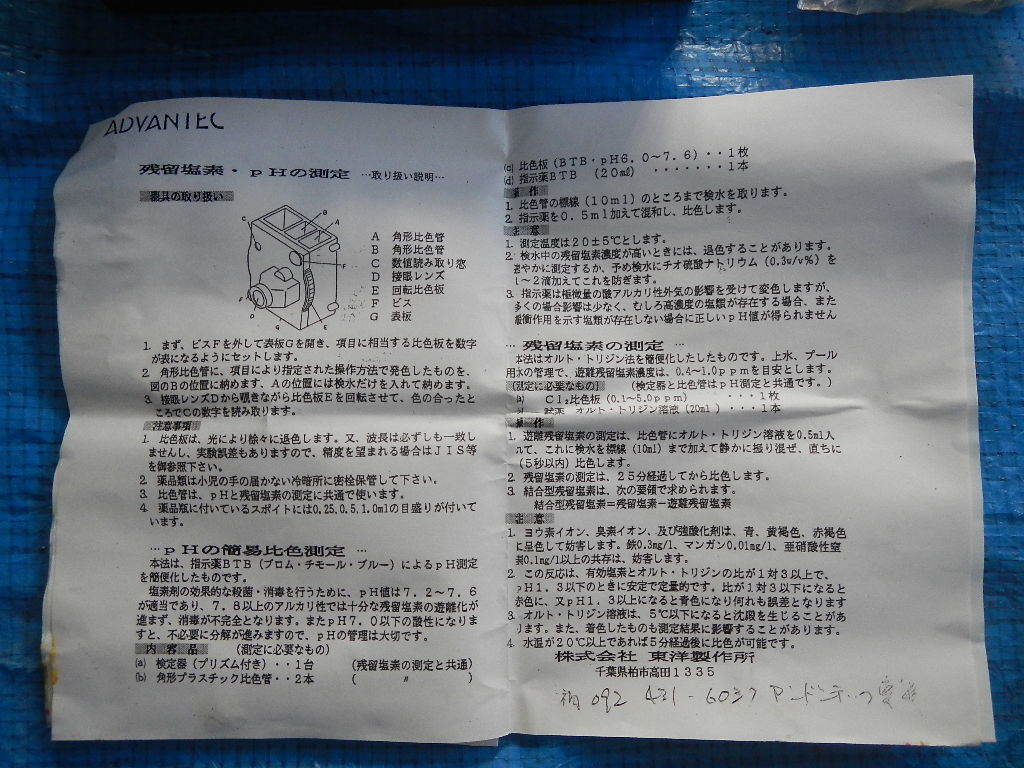 ADVANTEC
残留塩素・pHの測定 …取り扱い説明…
器具の取り扱い
C
B
A
F
F
D
G
E
A 角形比色管
B 角形比色管
C 数値読み取り窓
D 接眼レンズ
E 回転比色板
F ビス
G 表板
1. まず、ビスFを外して表板Gを開き、項目に相当する比色板を数字
が表になるようにセットします。
2. 角形比色管に、項目により指定された操作方法で発色したものを、
図のBの位置に納めます、Aの位置には検水だけを入れて納めます。
3. 接眼レンズDから覗きながら比色板Eを回転させて、色の合ったと
ころでCの数字を読み取ります。
注意事項
1. 比色板は、光により徐々に退色します。又、波長は必ずしも一致し
ませんし、実験誤差もありますので、精度を望まれる場合はJIS等
を御参照下さい。
2. 薬品類は小児の手の届かない冷暗所に密栓保管して下さい。
3. 比色管は、pHと残留塩素の測定に共通で使います。
4. 薬品瓶に付いているスポイトには0.25、0.5、1.0mlの目盛りが付いて
います。
…pHの簡易比色測定 …
本法は、指示薬BTB(ブロム・チモール・ブルー)によるpH測定
を簡便化したものです。
塩素剤の効果的な殺菌・消毒を行うために、pH値は7.2~7.6
が適当であり、7.8以上のアルカリ性では十分な残留塩素の遊離化が
進まず、消毒が不完全となります。またpH7.0以下の酸性になりま
すと、不必要に分解が進みますので、pHの管理は大切です。
内容品 (測定に必要なもの)
(a) 検定器(プリズム付き)・・1台 (残留塩素の測定と共通)
(b) 角形プラスチック比色管・・2本 ( 〃 )
(c) 比色板(BTB・pH6.0~7.6)・・1枚
(d) 指示薬BTB (20ml) ・・・・・・・1本
操作
1. 比色管の標線(10ml)のところまで検水を取ります。
2. 指示薬を0.5ml加えて混和し、比色します。
注意
1. 測定温度は20±5℃とします。
2. 検水中の残留塩素濃度が高いときには、退色することがあります。
速やかに測定するか、予め検水にチオ硫酸ナトリウム(0.3w/v%)を
1~2滴加えてこれを防ぎます。
3. 指示薬は極微量の酸アルカリ性外気の影響を受けて変色しますが、
多くの場合影響は少なく、むしろ高濃度の塩類が存在する場合、また
緩衝作用を示す塩類が存在しない場合に正しいpH値が得られません
… 残留塩素の測定 …
本法はオルト・トリジン法を簡便化したしたものです。上水、プール
用水の管理で、遊離残留塩素濃度は、0.4~1.0ppmを目安とします。
(測定に必要なもの) (検定器と比色管はpH測定と共通です。)
a) Cl₂比色板(0.1~5.0ppm) ・・・1枚
試薬 オルト・トリジン溶液(20ml) ・・・1本
操作
1. 遊離残留塩素の測定は、比色管にオルト・トリジン溶液を0.5ml入
れて、これに検水を標線(10ml)まで加えて静かに振り混ぜ、直ちに
(5秒以内)比色します。
2. 残留塩素の測定は、25分経過してから比色します。
3. 結合型残留塩素は、次の要領で求められます。
結合型残留塩素=残留塩素-遊離残留塩素
注意
1. ヨウ素イオン、臭素イオン、及び強酸化剤は、青、黄褐色、赤褐色
に呈色して妨害します。鉄0.3mg/l、マンガン0.01mg/l、亜硝酸性窒
素0.1mg/l以上の共存は、妨害します。
2. この反応は、有効塩素とオルト・トリジンの比が1対3以上で、
pH1.3以下のときに安定で定量的です。比が1対3以下になると
赤色に、又pH1.3以上になると青色になり何れも誤差となります
3. オルト・トリジン溶液は、5℃以下になると沈殿を生じることがあ
ります。また、着色したものも測定結果に影響することがあります。
4. 水温が20℃以上であれば5分経過後に比色が可能です。
株式会社 東洋製作所
千葉県柏市高田1335
092 431-6037